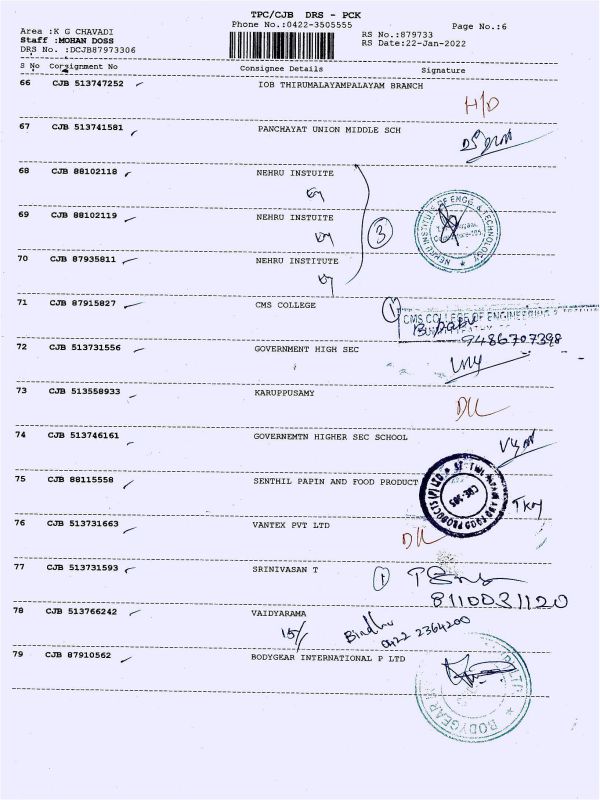 TPC/CJB DRS - PCK
Phone No.:0422-3505555
Page No.:6
Area :K G CHAVADI
RS No.:879733
Staff :MOHAN DOSS
RS Date:22-Jan-2022
DRS No. :DCJB87973306
S No Consignment No Consignee Details Signature
66 CJB 513747252 IOB THIRUMALAYAMPALAYAM BRANCH
H/D
67 CJB 513741581 PANCHAYAT UNION MIDDLE SCH
68 CJB 88102118 NEHRU INSTUITE
69 CJB 88102119 NEHRU INSTUITE
3
NEHRU INSTITUTE OF ENGG & TECHNOLOGY
70 CJB 87935811 NEHRU INSTITUTE
71 CJB 87915827 CMS COLLEGE
1
CMS COLLEGE OF ENGINEERING &
B. Babu
9486707398
72 CJB 513731556 GOVERNMENT HIGH SEC
73 CJB 513558933 KARUPPUSAMY
D/L
74 CJB 513746161 GOVERNEMTN HIGHER SEC SCHOOL
75 CJB 88115558 SENTHIL PAPIN AND FOOD PRODUCT
CBE-105
76 CJB 513731663 VANTEX PVT LTD
D/L
77 CJB 513731593 SRINIVASAN T
1
8110031120
78 CJB 513766242 VAIDYARAMA
15/
Bindhu
0422 2364200
79 CJB 87910562 BODYGEAR INTERNATIONAL P LTD